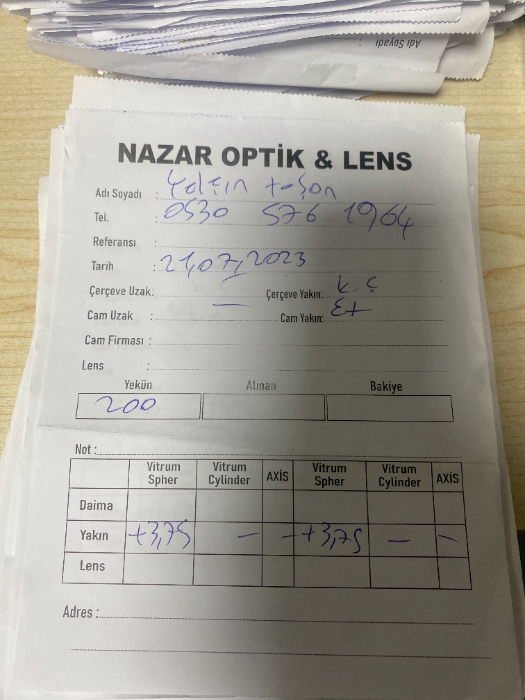 Adı Soyadı
NAZAR OPTİK & LENS
Adı Soyadı : Yalçın taşon
Tel. : 0530 576 1964
Referansı :
Tarih : 21,07,2023
Çerçeve Uzak: — Çerçeve Yakın: k.ç
Cam Uzak : — Cam Yakın: Ex
Cam Firması :
Lens :
Yekün Alınan Bakiye
200
Not :
Vitrum Spher Vitrum Cylinder AXİS Vitrum Spher Vitrum Cylinder AXİS
Daima
Yakın +3,75 — — +3,75 — —
Lens
Adres :